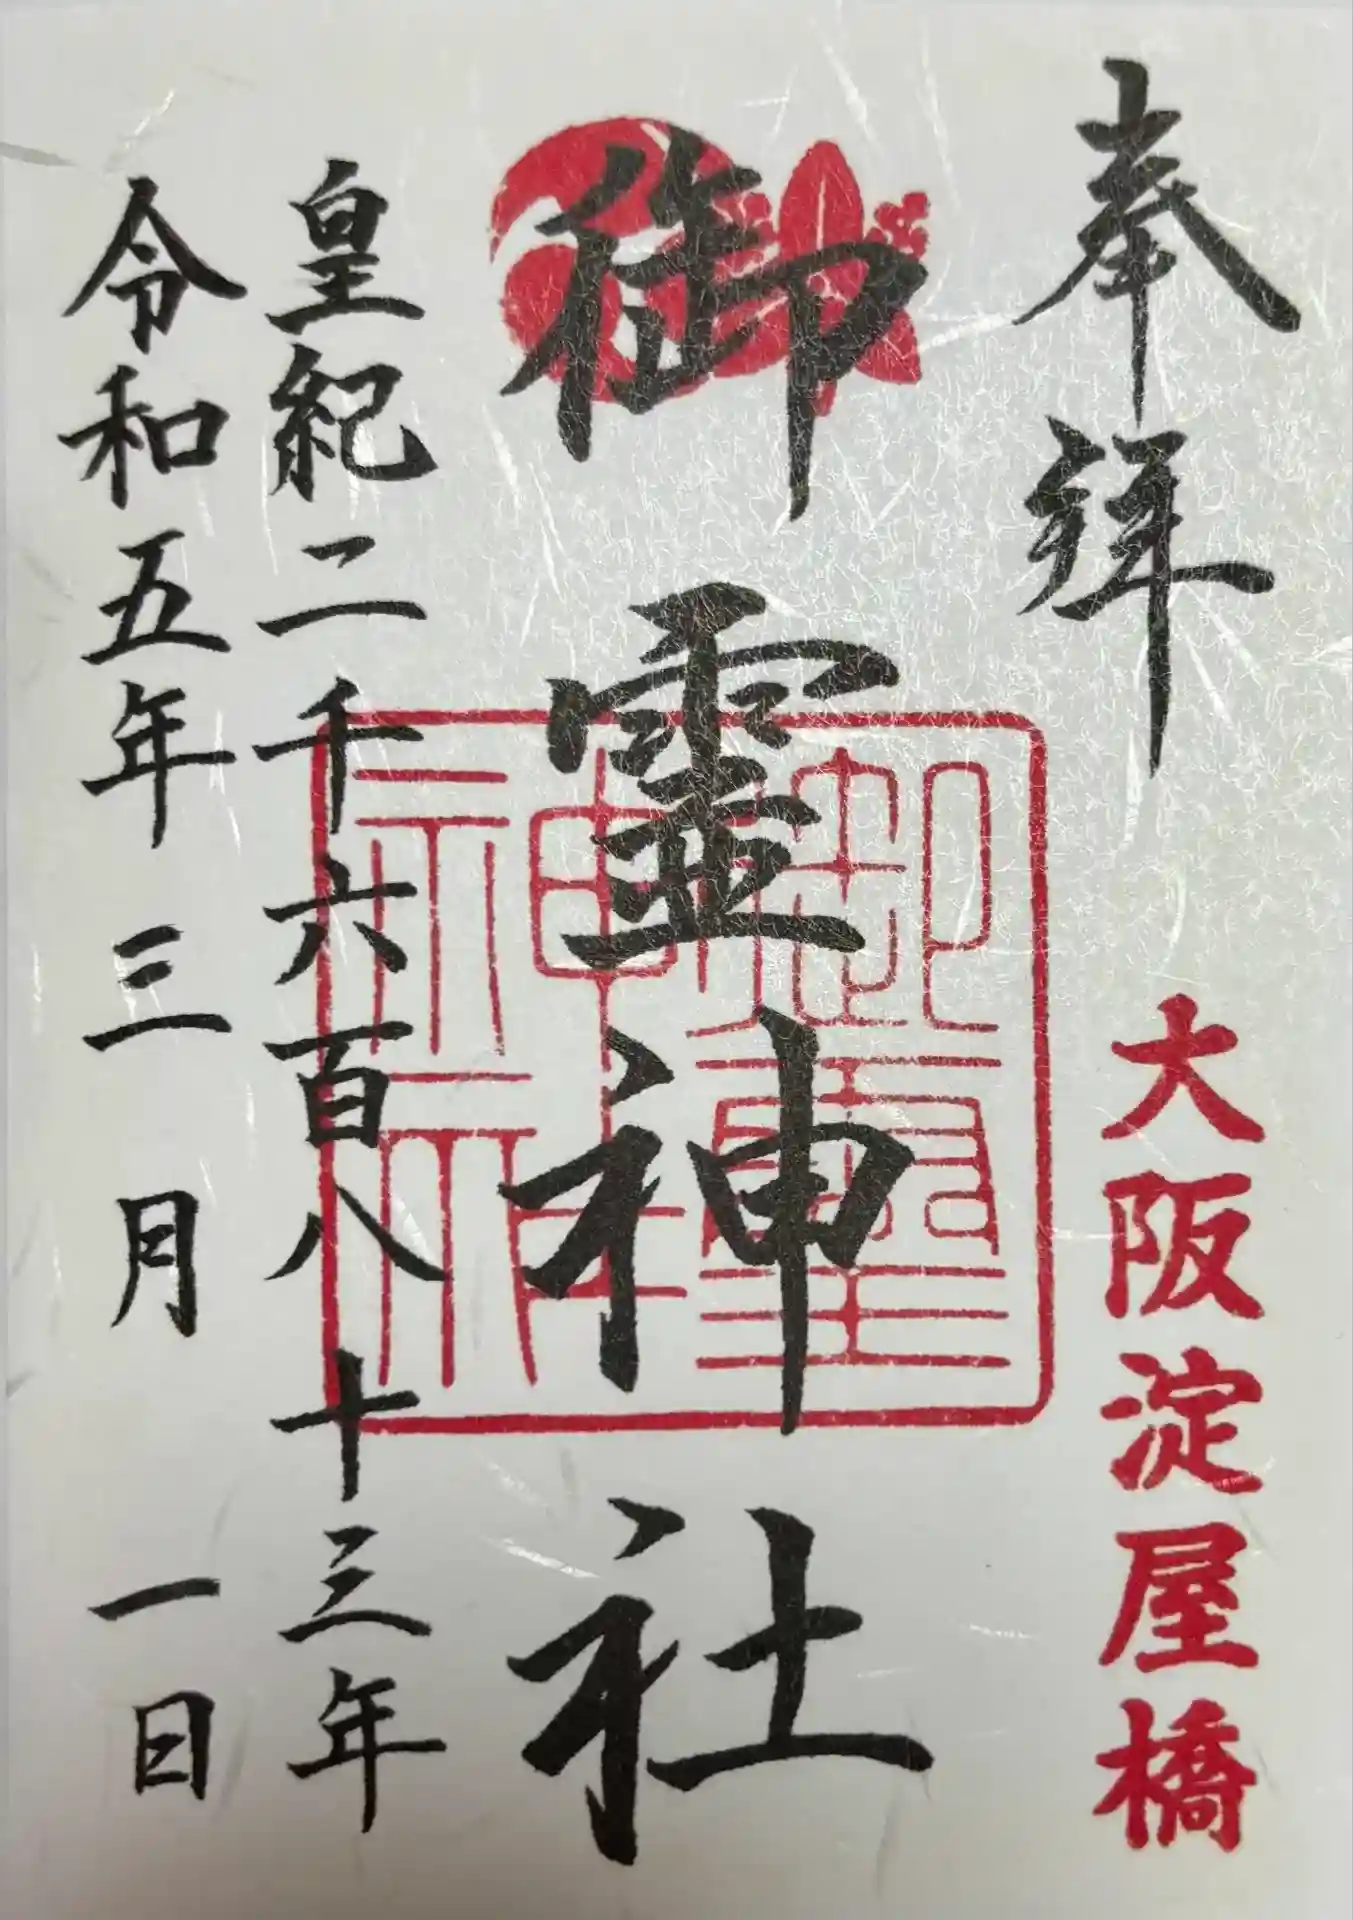 奉拜
大阪淀屋橋
御靈神社
御靈神社
皇紀二千六百八十三年
令和五年三月一日